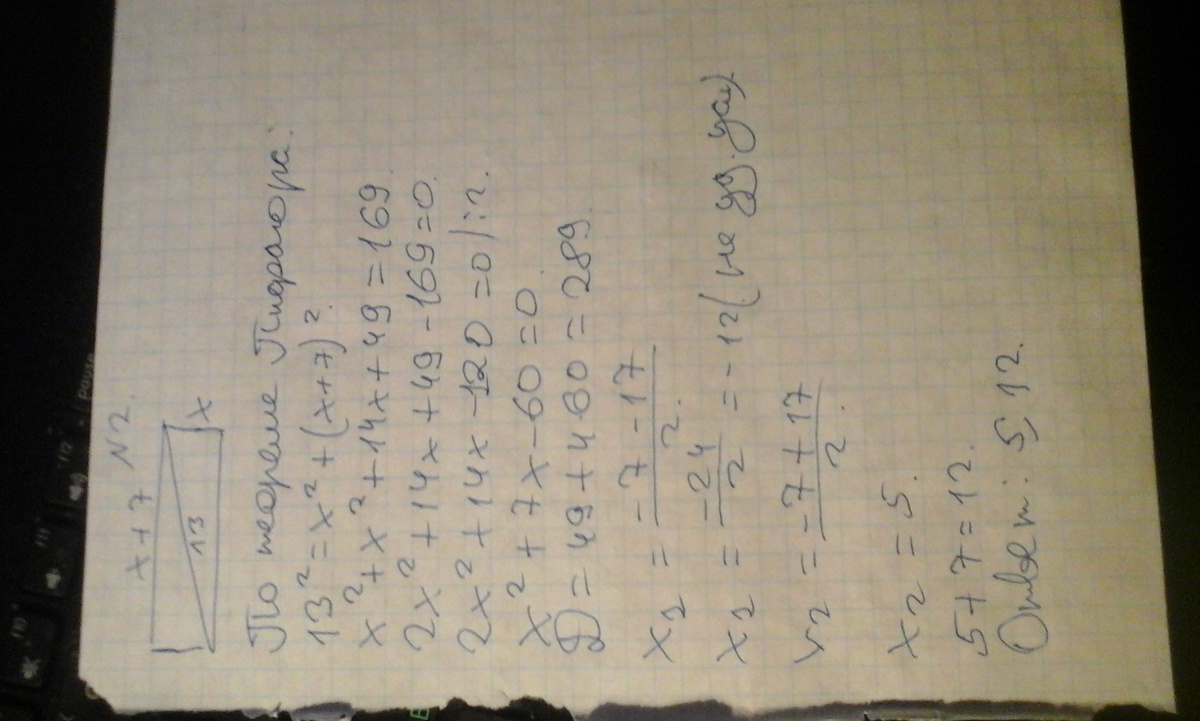 N2.
x+7
x
13
По теореме Пифагора:
13² = x² + (x+7)².
x² + x² + 14x + 49 = 169.
2x² + 14x + 49 - 169 = 0.
2x² + 14x - 120 = 0 |:2.
x² + 7x - 60 = 0.
D = 49 + 4·60 = 289.
x₁ = (-7 - 17)/2.
x₁ = -24/2 = -12 (не уд. усл).
x₂ = (-7 + 17)/2.
x₂ = 5.
5 + 7 = 12.
Ответ: 5, 12.
Pause
F12
F11
F10